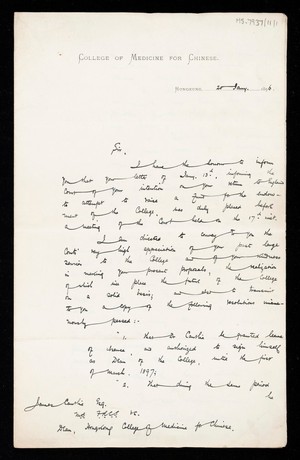 MS.7937/11/1
COLLEGE OF MEDICINE FOR CHINESE.
HONGKONG, 20 Jany. 1896.
Sir,
I have the honour to inform
you that your letter of Jany. 13th, informing the
Court of your intention on your return to England
to attempt to raise a fund for the endow-
ment of the College, was duly placed before
a meeting of the Court held on the 17th inst.
I am directed to convey to you the
Courts' very high appreciation of your past large
service to the College and of your
in making your present proposals, the realization
of which will place the future of the College
on a solid basis; and also to transmit
to you a copy of the following resolutions unani-
mously passed:-
"1. That Dr Cantlie be granted leave
of absence, and authorized to sign himself
as Dean of the College, until the first
of March, 1897;
"2. That during the same period
he
James Cantlie Esq.
M.B. F.R.C.S. &c.
Dean, Hongkong College of Medicine for Chinese.